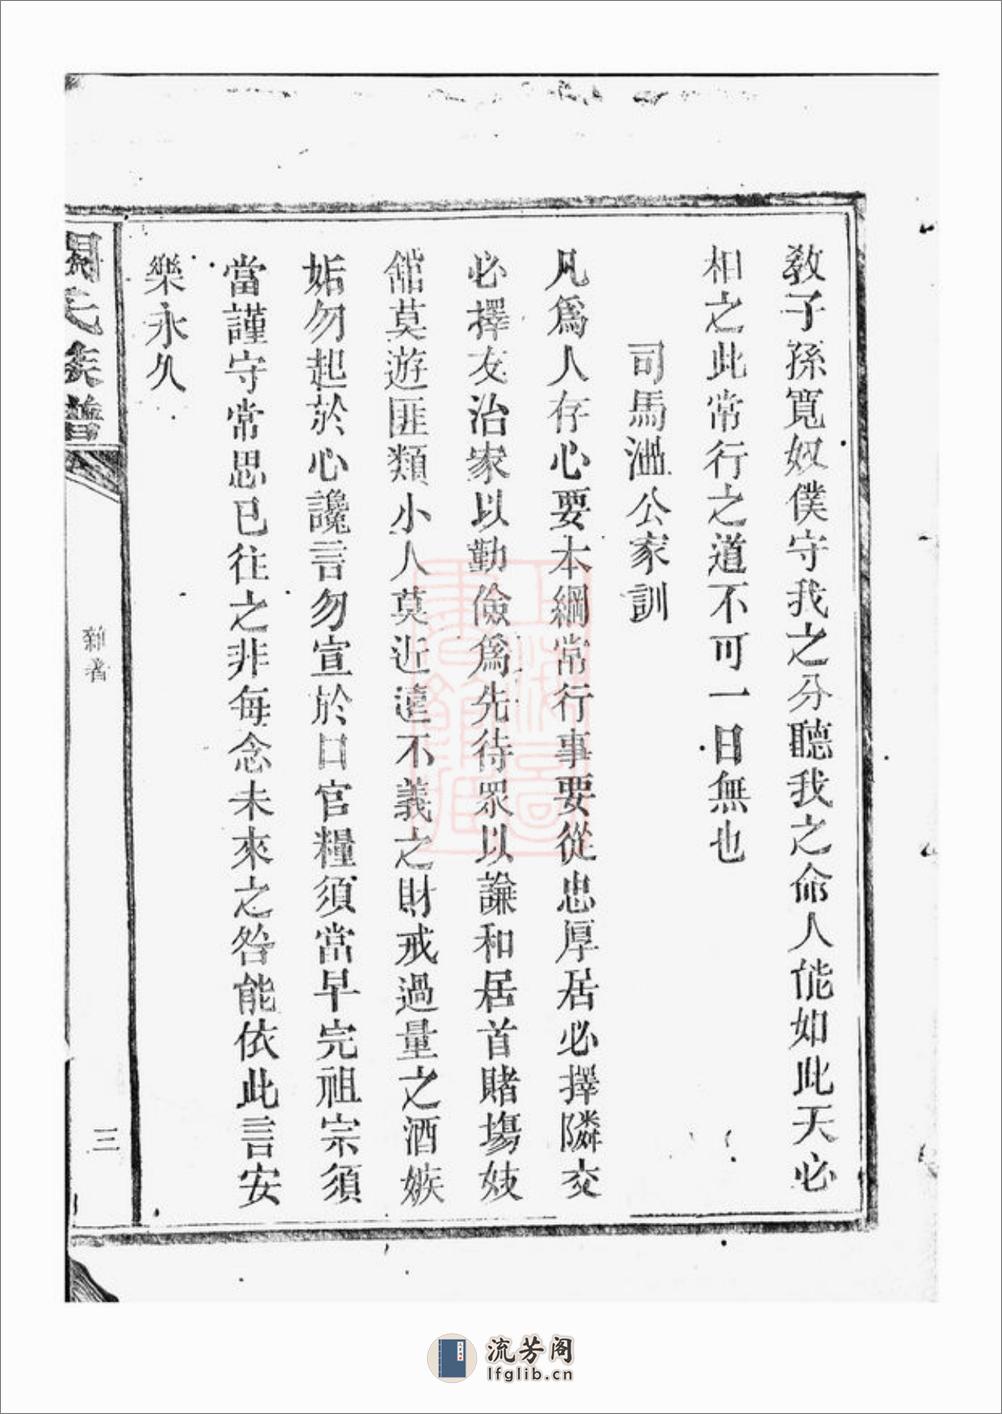 教子孫寬奴僕守我之分聽我之命人能如此天必
相之此常行之道不可一日無也
司馬溫公家訓
凡為人存心要本綱常行事要從忠厚居必擇隣交
必擇友治家以勤儉為先待眾以謙和居首賭塲妓
館莫遊匪類小人莫近遠不義之財戒過量之酒嫉
妬勿起於心讒言勿宣於口官糧須當早完祖宗須
當謹守常思已往之非每念未來之咎能依此言安
樂永久
氏族譜
三
上海圖書館藏
流芳阁
lfglib.cn